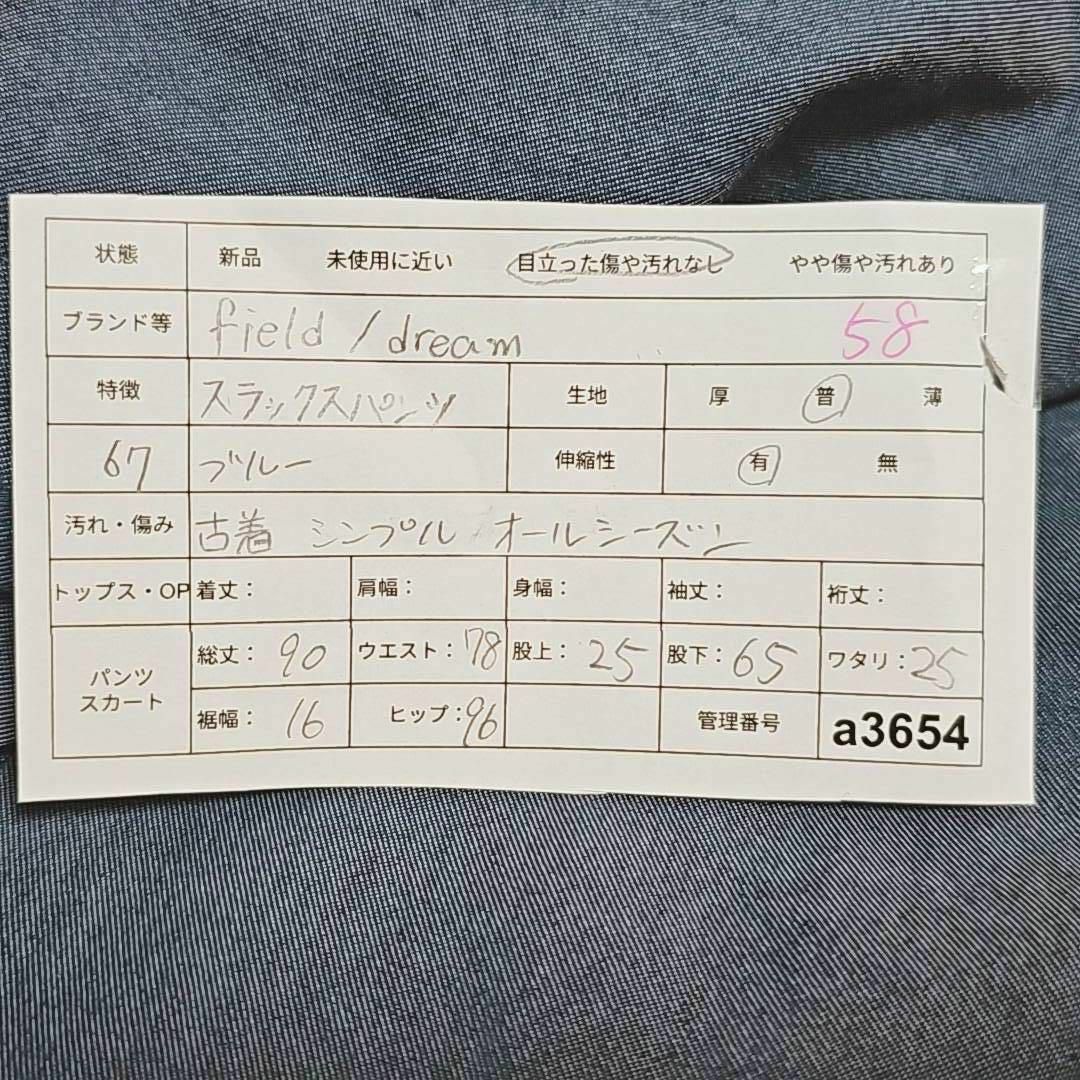 状態 新品 未使用に近い 目立った傷や汚れなし やや傷や汚れあり
ブランド等 field / dream 58
特徴 スラックスパンツ 生地 厚 普 薄
67 ブルー 伸縮性 有 無
汚れ・傷み 古着 シンプル オールシーズン
トップス・OP 着丈： 肩幅： 身幅： 袖丈： 裄丈：
パンツ スカート 総丈： 90 ウエスト：78 股上： 25 股下：65 ワタリ：25
裾幅： 16 ヒップ：96 管理番号 a3654